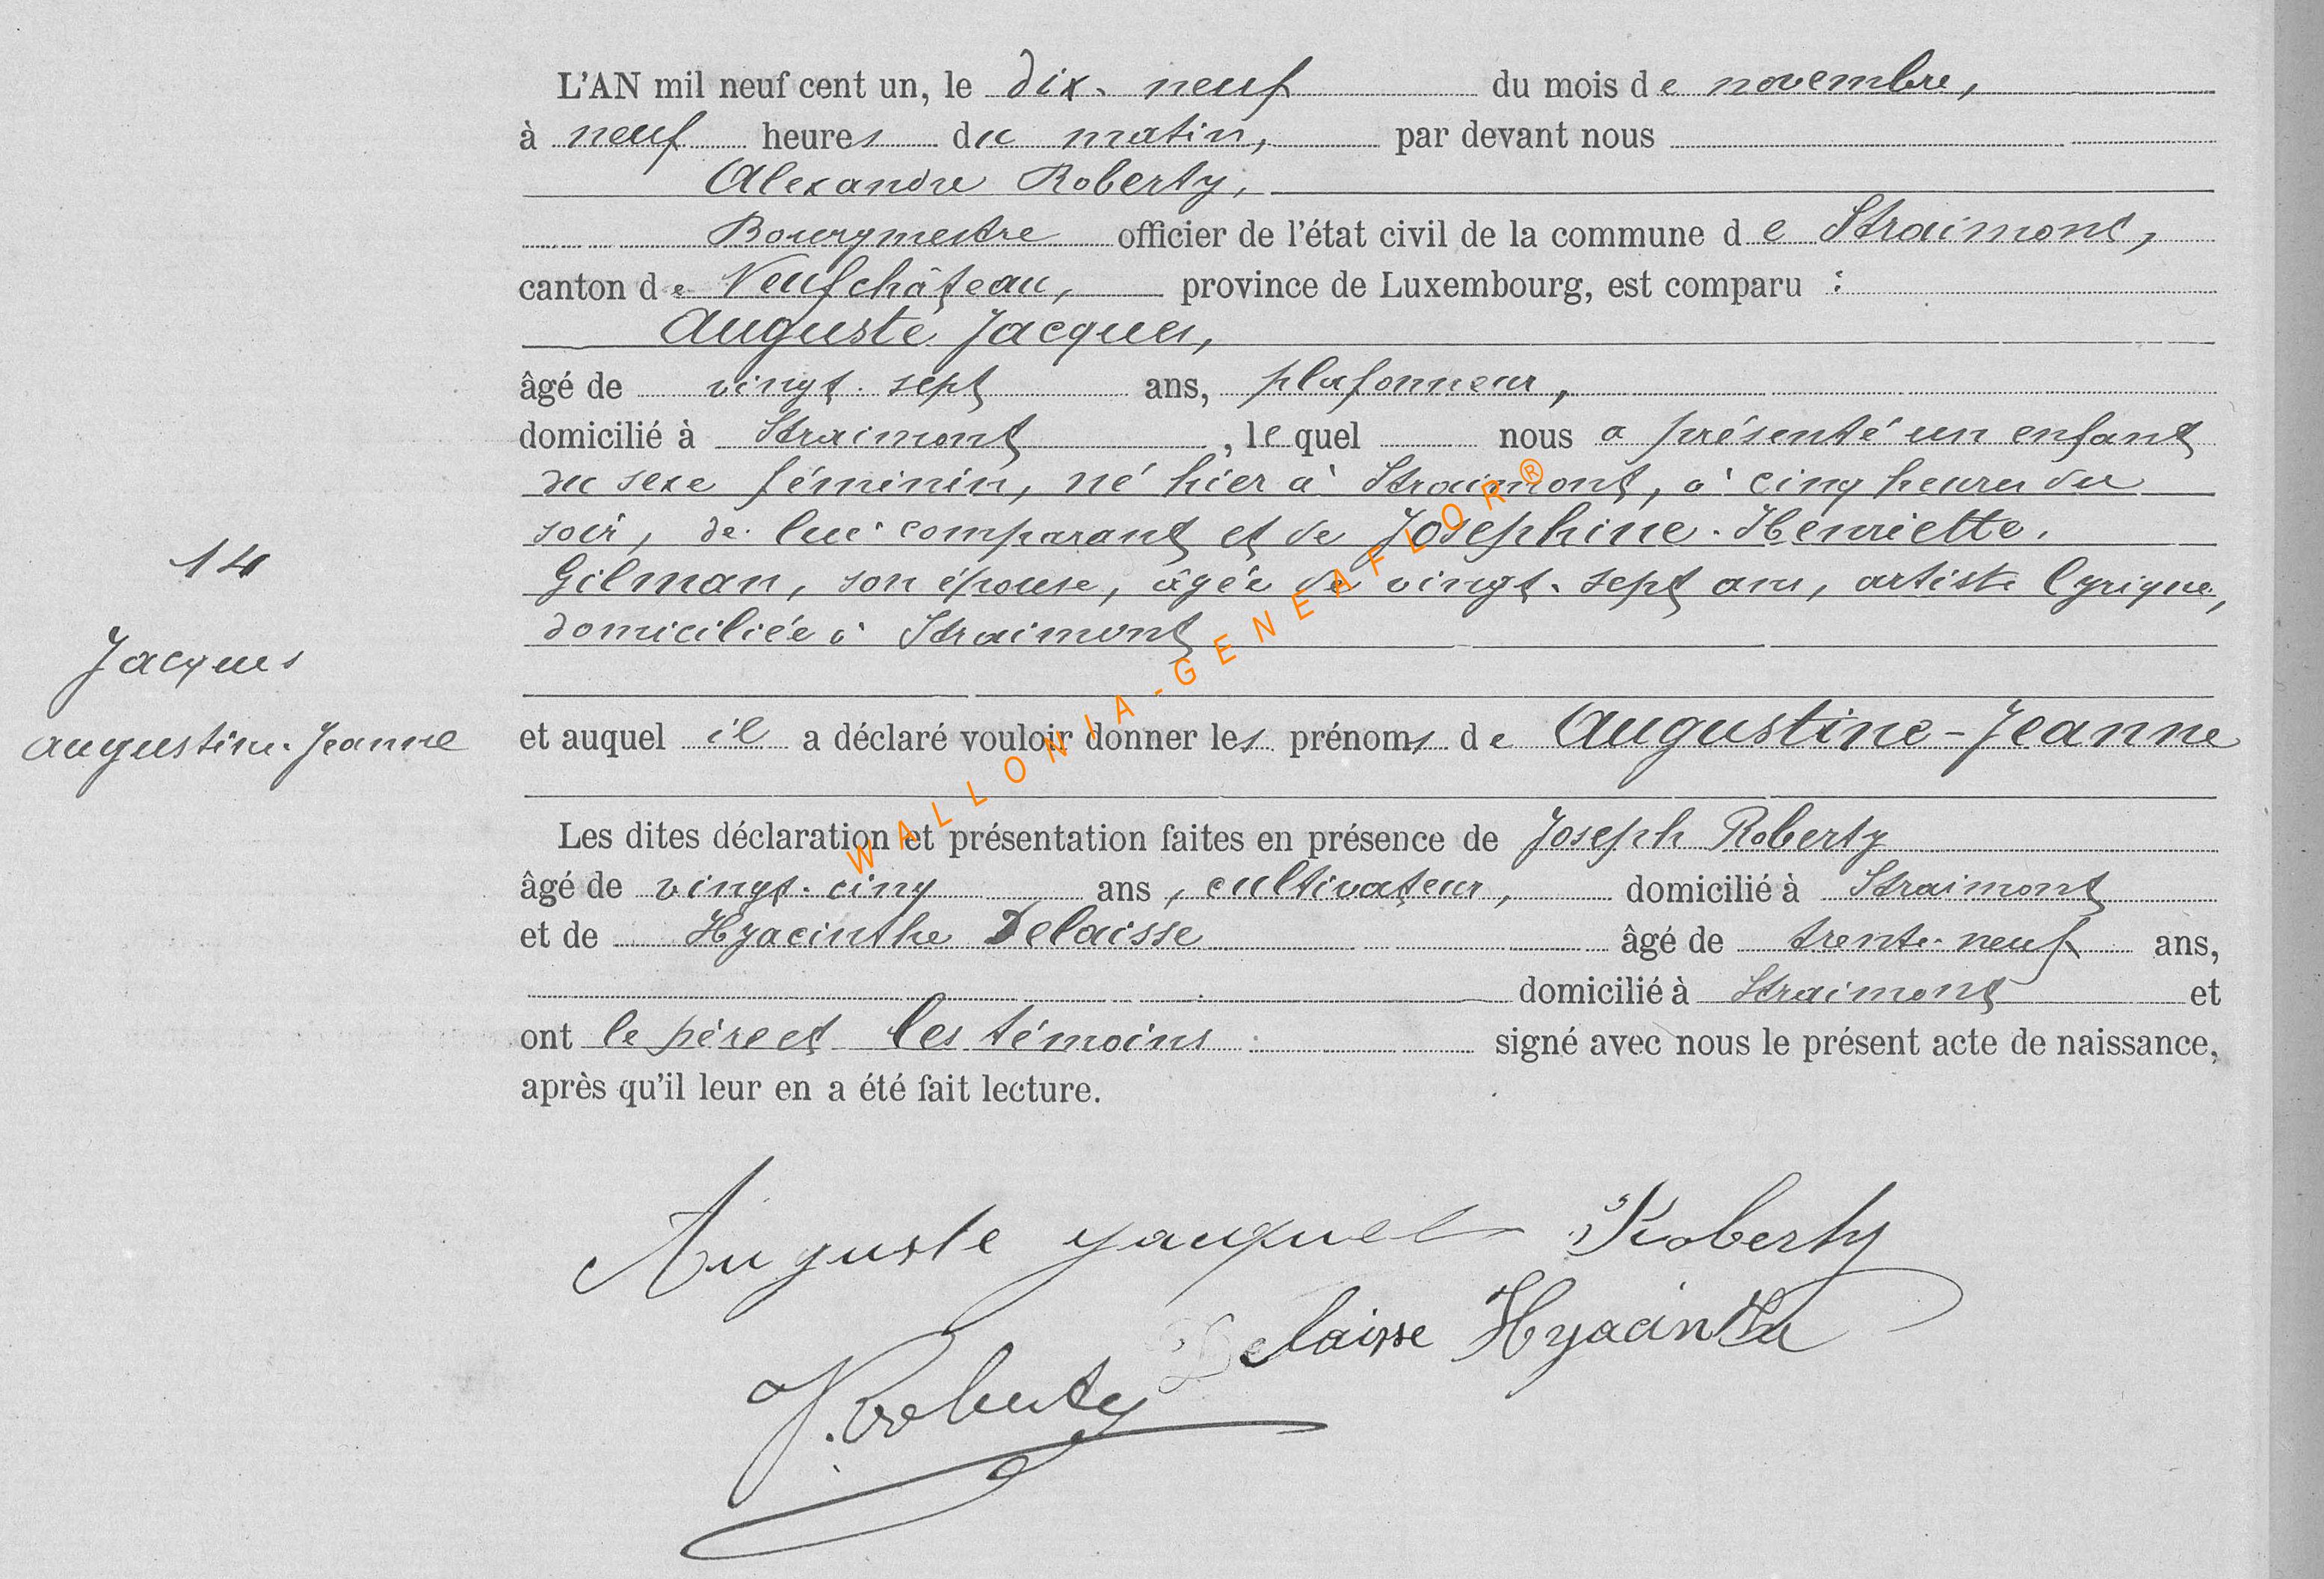 L'AN mil neuf cent un, le dix-neuf du mois de novembre,
à neuf heures du matin, par devant nous
Alexandre Roberty,
Bourgmestre officier de l'état civil de la commune de Straimont,
canton de Neufchâteau, province de Luxembourg, est comparu :
Auguste Jacques,
âgé de vingt-sept ans, plafonneur,
domicilié à Straimont, lequel nous a présenté un enfant
du sexe féminin, né hier à Straimont, à cinq heures du
soir, de lui comparant et de Josephine-Henriette.
Gilman, son épouse, âgée de vingt-sept ans, artiste lyrique,
domiciliée à Straimont
14
Jacques
Augustine-Jeanne
et auquel il a déclaré vouloir donner les prénoms de Augustine-Jeanne
Les dites déclaration et présentation faites en présence de Joseph Roberty
âgé de vingt-cinq ans, cultivateur, domicilié à Straimont
et de Hyacinthe Delaisse âgé de trente-neuf ans,
domicilié à Straimont et
ont le père et les témoins signé avec nous le présent acte de naissance,
après qu'il leur en a été fait lecture.
Auguste Jacques Roberty
Delaisse Hyacinthe
J. Roberty
WALLONIA-GENEAFLOR®